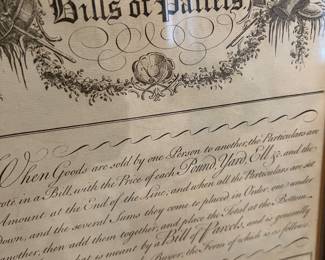 Bills of Parcels,
When Goods are sold by one Person to another, the Particulars are
wrote in a Bill, with the Price of each Pound, Yard, Ell &c. and the
Amount at the End of the Line, and when all the Particulars are set
down, and the several Sums they come to placed in Order, one under
another, then add them together, and place the Total at the Bottom
what is meant by a Bill of Parcels, and is generally
Buyer, the Form of which is as follows.